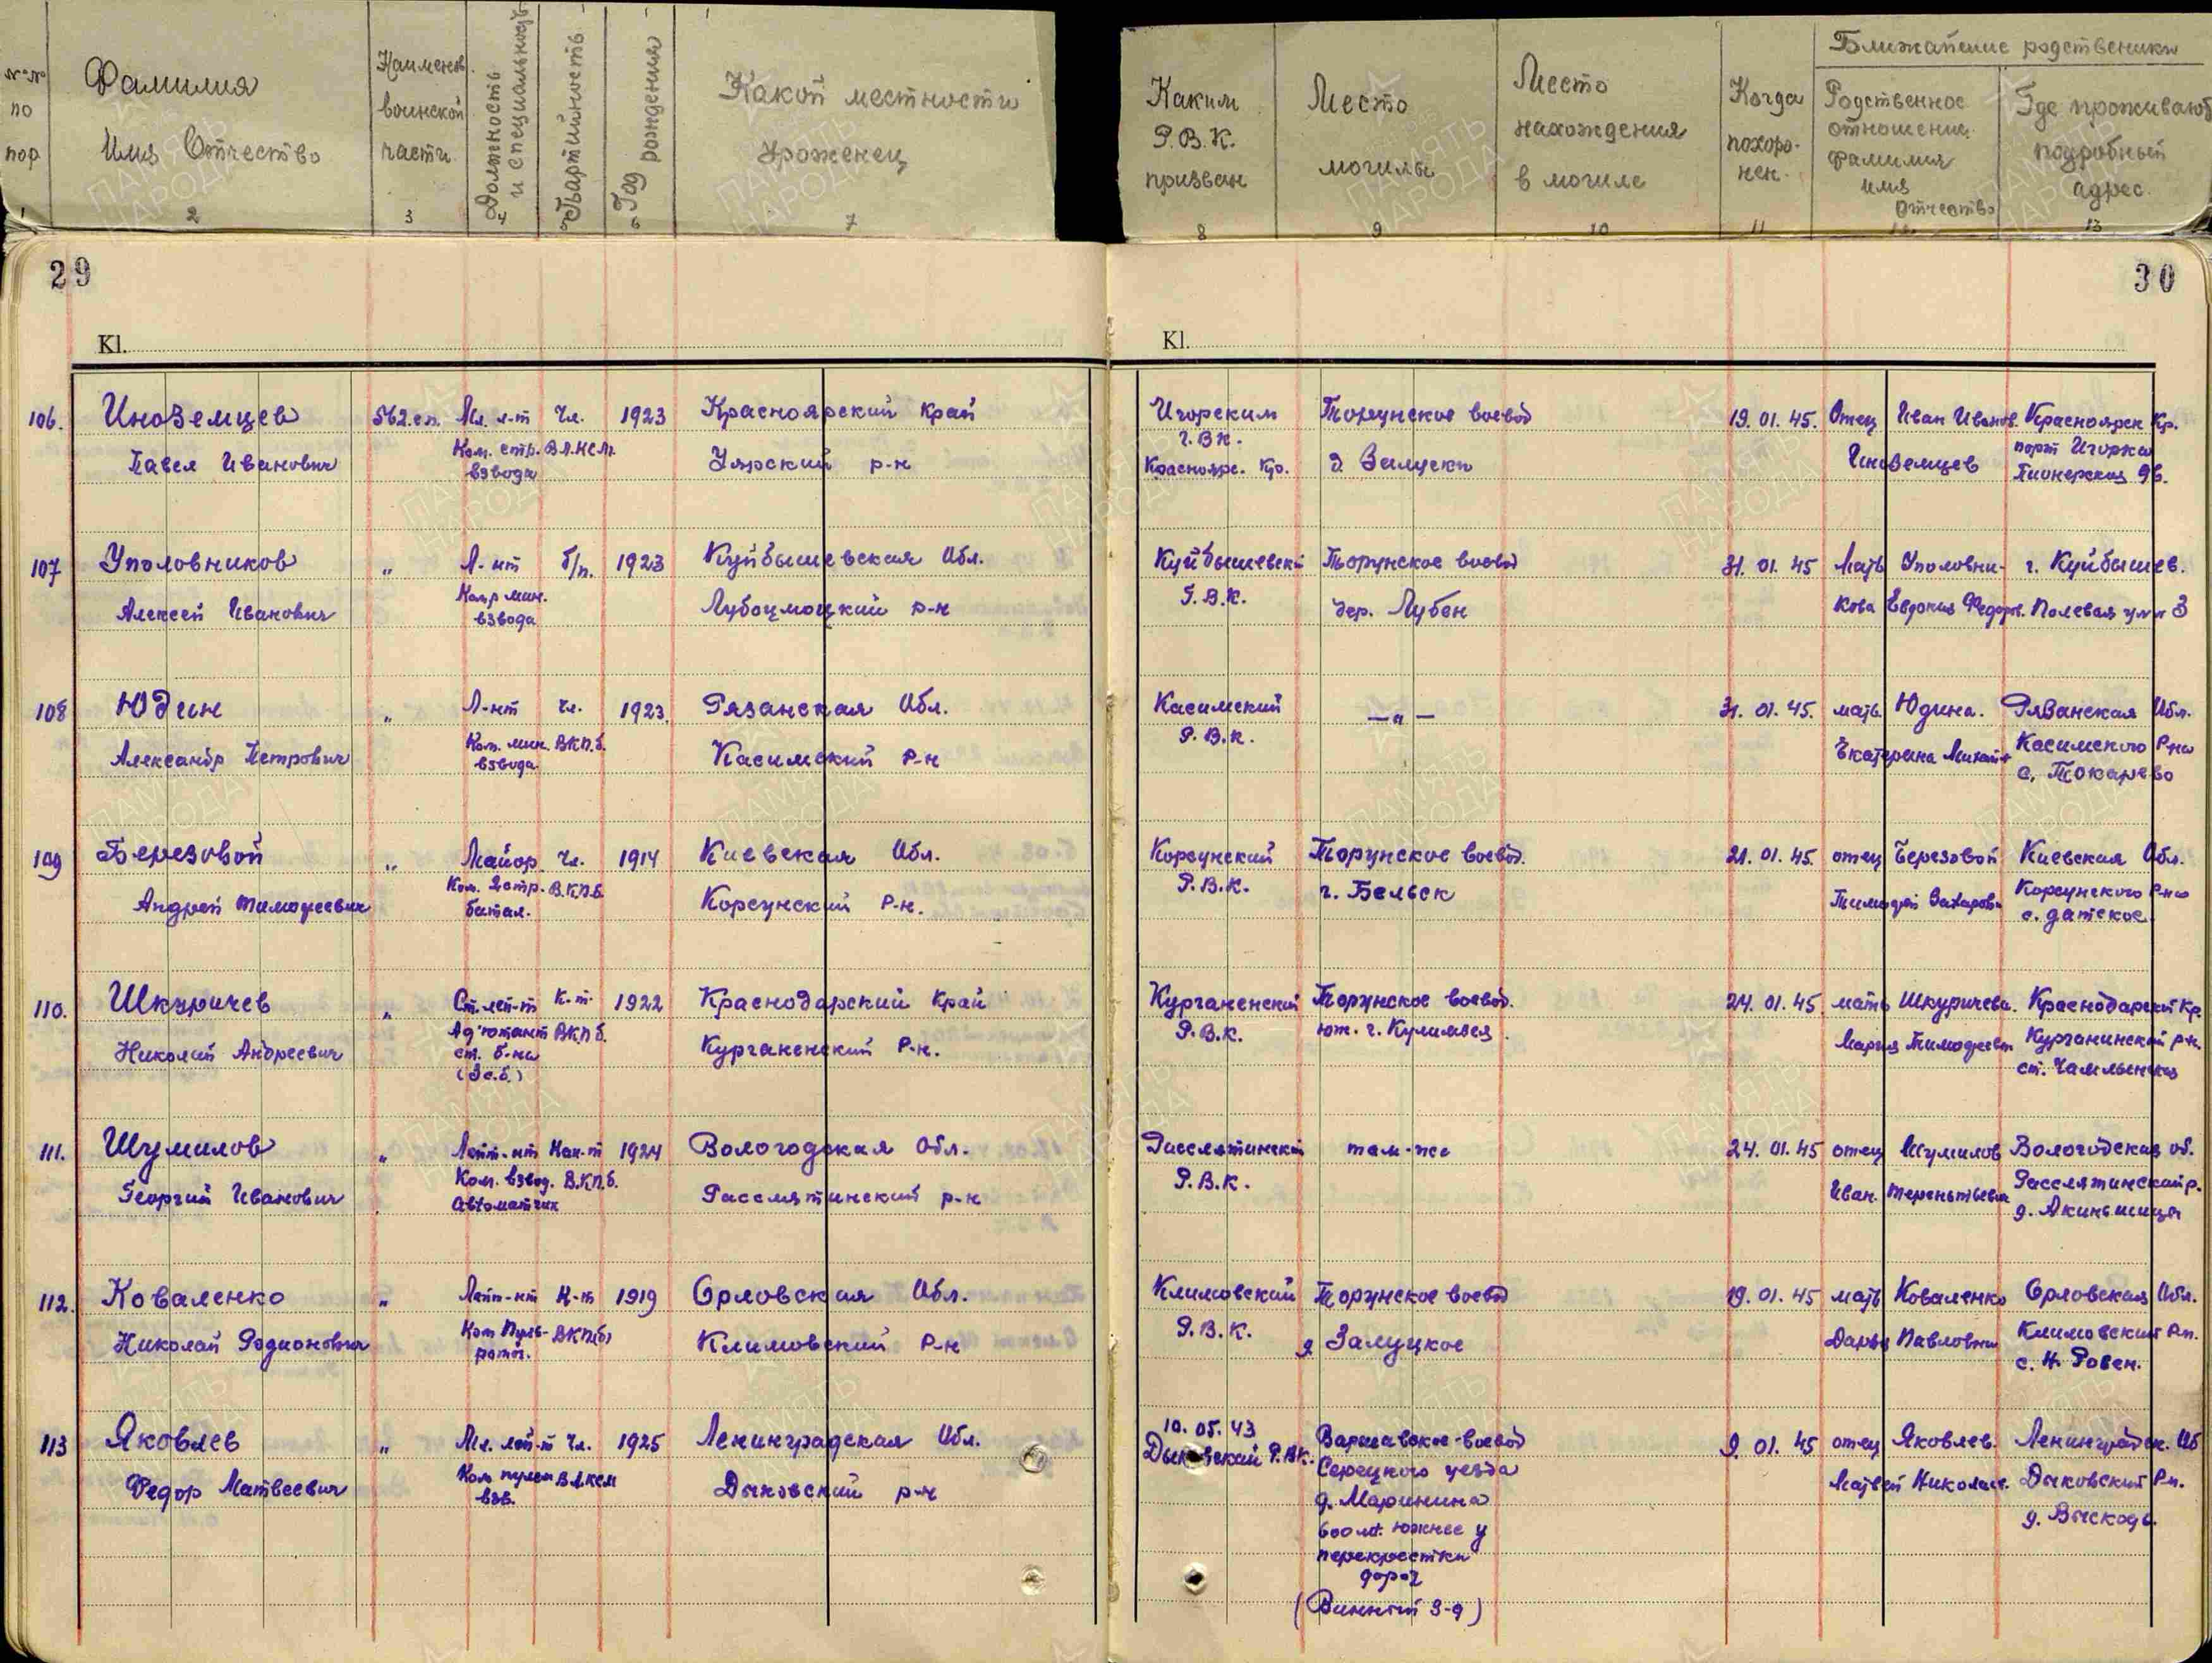 №№ по пор
Фамилия Имя Отчество
Наименов. воинской части
Должность и специальность
Партийность
Год рождения
Какой местности уроженец
Каким Р.В.К. призван
Место могилы
Место нахождения в могиле
Когда похоронен.
Ближайшие родственики
Родственное отношение фамилия имя Отчество
Где проживают подробный адрес.
1 2 3 4 5 6 7 8 9 10 11 12 13
29
30
Kl.
Kl.
106. Иноземцев 562.сп. Мл. л-т Чл. 1923 Красноярский Край Игорским Торунское воевод 19. 01. 45. Отец Иван Иванов. Красноярск Кр.
Павел Иванович Ком. стр. взвода В.Л.К.С.М. Уярский р-н Г.В.К. Красноярс. Кр. д. Залуски Иноземцев порт Игорка Пионерская 9в.
107 Уполовников " Л-нт б/п. 1923 Куйбышевская Обл. Куйбышевский Торунское воевод 31. 01. 45 Мать Уполовни- г. Куйбышев.
Алексей Иванович Кор мин. взвода р-н Г.В.К. дер. Лубен кова Евдокия Федоров. Полевая ул 3
108 Юдин " Л-нт чл. 1923 Рязанская Обл. Касимский — " — 31. 01. 45. мать Юдина. Рязанская Обл.
Александр Петрович Ком. мин. взвода В.К.П.б. Касимский Р-н Р.В.К. Екатерина Касимского Р-на с. Токарево
109 Березовой " Майор Чл. 1914 Киевская Обл. Корсунский Торунское воевод. 21. 01. 45. отец Березовой Киевская Обл.
Андрей Тимофеевич Ком. батал. В.К.П.б. Корсунский Р-н. Р.В.К. г. Бельск Тимофей Захарови Корсунского Р-на с. Датское
110. Шкуричев " Ст. лей-т К-т. 1922 Краснодарский Край Курганенский Торунское воевод. 24. 01. 45 мать Шкуричева. Краснодарский Кр.
Николай Андреевич Ад'ютант ст. б-на (3 с.б.) В.К.П.б. Курганенский Р-н. Р.В.К. юж. г. Мария Тимофеевн Курганинский р-н. ст. Чамлыкская
111. Шумилов " Лейт-нт Кан-т 1924 Вологодская Обл. Расслятинский там-же 24. 01. 45 отец Шумилов Вологодская об.
Георгий Иванович Ком. взвод. Автоматчик В.К.П.б. Расслятинский р-н Р.В.К. Иван Терентьевич Расслятинский р.
112. Коваленко " Лейт-нт К-т 1919 Орловская Обл. Климовский Торунское воевод 19. 01. 45 мать Коваленко Орловская Обл.
Николай Родионович Ком Пуль- роты. ВКП(б) Климовский Р-н Р.В.К. д Залуцкое Дарья Павловна Климовский Р-н. с. Н. Ровен.
113 Яковлев " Мл. лей-т Чл. 1925 Ленинградская Обл. 10. 05. 43 Варшавское-воевод 9. 01. 45 отец Яковлев. Ленинградск. Об
Федор Матвеевич Ком пулем взв. ВЛКСМ Дычковский р-н Р.В.К. Серецкого уезда Матвей Николаев. Дычковский Р-н.
д. Маринина д. Выскодь.
600 мт. южнее у
перекрестка
дорог
(Винный З-д)
ПАМЯТЬ НАРОДА